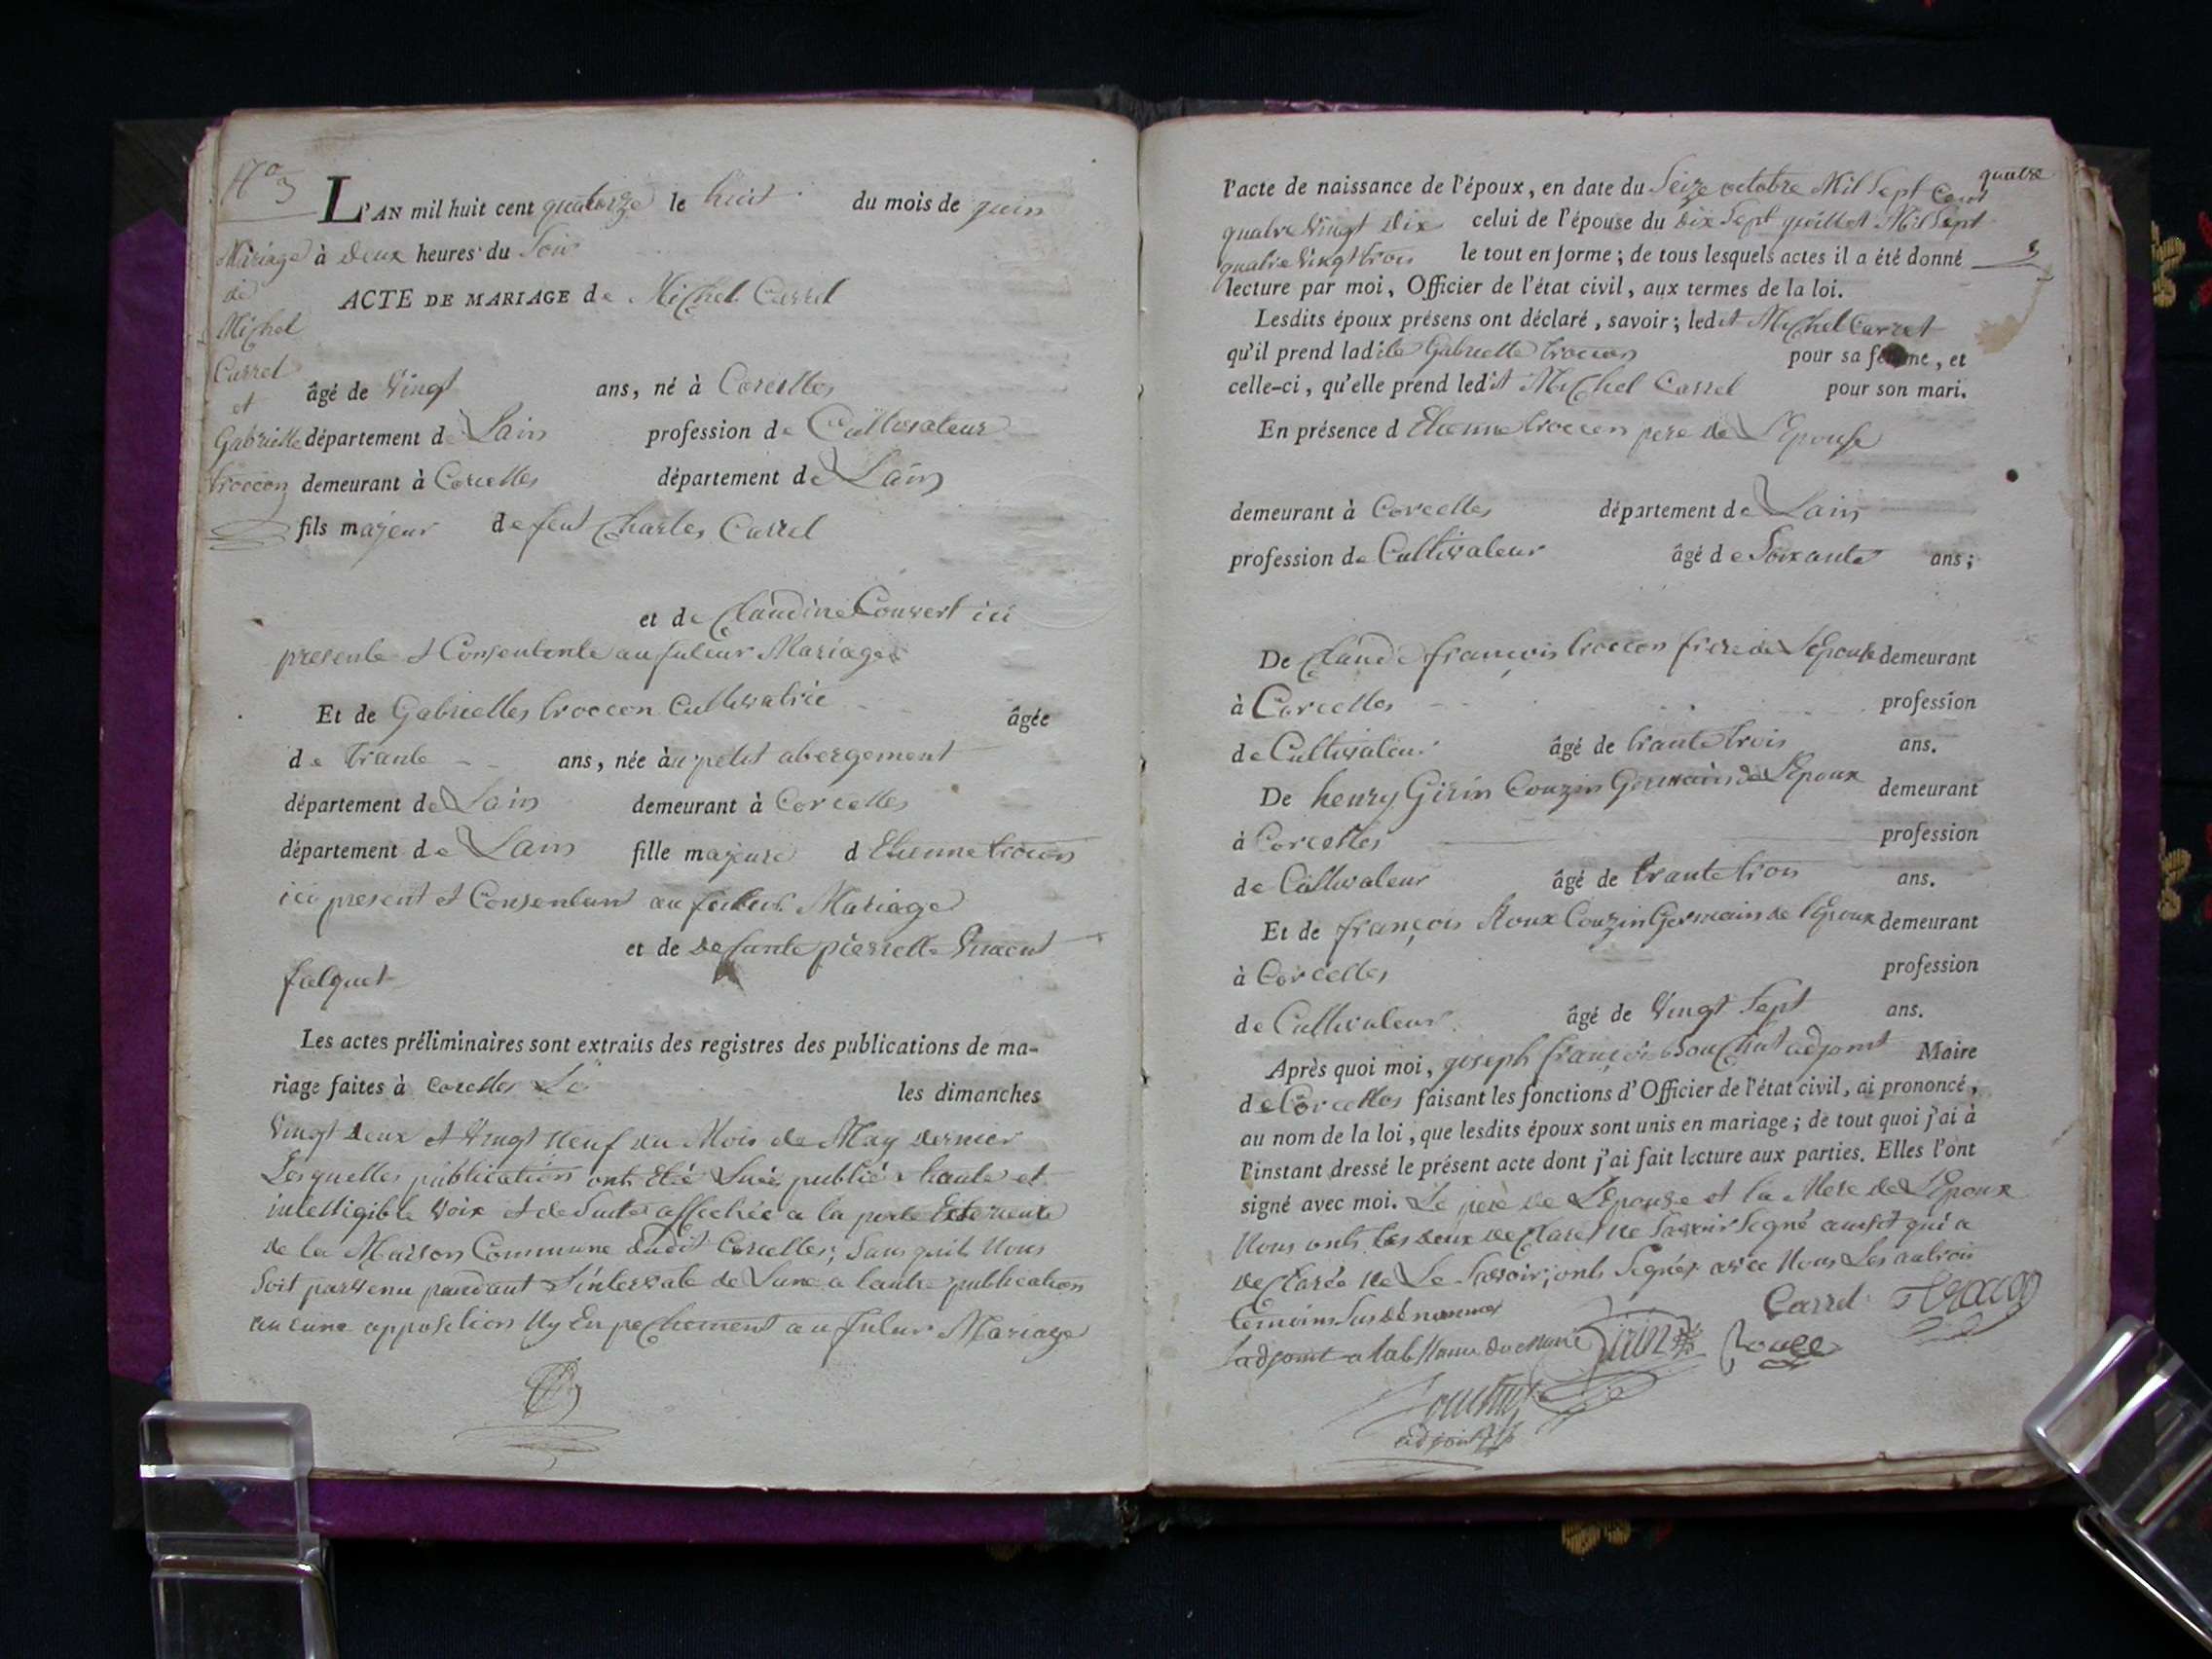 No 3
L'AN mil huit cent quatorze le huit du mois de juin
Mariage de Michel Carrel et Gabrielle troccon
à deux heures du Soir
ACTE DE MARIAGE de Michel Carrel
âgé de Vingt ans, né à Corcelles
département de Lain profession de Cultivateur
demeurant à Corcelles département de Lain
fils majeur de feut Charles Carrel
et de Claudine Couvert ici
presente et Consentente au futeur Mariage
Et de Gabrielles troccon Cultivatrice âgée
de trante ans, née àu petit abergement
département de Lain demeurant à Corcelles
département de Lain fille majeure d Etienne trocon
ici present et Consentant au futur Mariage
et de defunte pierrette Vincent
falquet
Les actes préliminaires sont extraits des registres des publications de ma-
riage faites à Corcelles Le les dimanches
Vingt deux et Vingt neuf du Mois de May dernier
Lesquelles publication ont Eté publié a haute et
intelligible Voix et de Suite affichée a la porte Exterieure
de la Maison Commune dudit Corcelles, Sans quil Nous
Soit parvenu pandant L'intervale de Lune a lautre publication
aucune opposition Ny Enpechement au futur Mariage
l'acte de naissance de l'époux, en date du Seize octobre Mil Sept Cent quatre
quatre Vingt Dix celui de l'épouse du dix Sept juillet Mil Sept
quatre Vingt trois le tout en forme ; de tous lesquels actes il a été donné
lecture par moi, Officier de l'état civil, aux termes de la loi.
Lesdits époux présens ont déclaré, savoir ; ledit Michel Carret
qu'il prend ladite Gabrielle troccon pour sa femme, et
celle-ci, qu'elle prend ledit Michel Carrel pour son mari.
En présence d Etienne troccon pere de L'Epouse
demeurant à Corcelles département de Lain
profession de Cultivateur âgé de Soixante ans ;
De Claude françois troccon frere de L'Epouse demeurant
à Corcelles profession
de Cultivateur âgé de trante trois ans.
De henry Girin Couzin Germain de L'Epoux demeurant
à Corcelles profession
de Cultivateur âgé de trante trois ans.
Et de françois Roux Couzin Germain de l'Epoux demeurant
à Corcelles profession
de Cultivateur âgé de Vingt Sept ans.
Après quoi moi, joseph françois Bouchut adjoint Maire
de Corcelles faisant les fonctions d'Officier de l'état civil, ai prononcé,
au nom de la loi, que lesdits époux sont unis en mariage ; de tout quoi j'ai à
l'instant dressé le présent acte dont j'ai fait lecture aux parties. Elles l'ont
signé avec moi. Le pere de L'Epouse et la Mere de L'Epoux
Nous ont tes deux declaré ne Savoir Segné
declarée ne Le Savoir, ont Segnés avec Nous Les autrois
temoins Sus dénommes
Carrel Trocon
Ladjoint a labsence du maire Girin Roux
Bouchut
adjoint